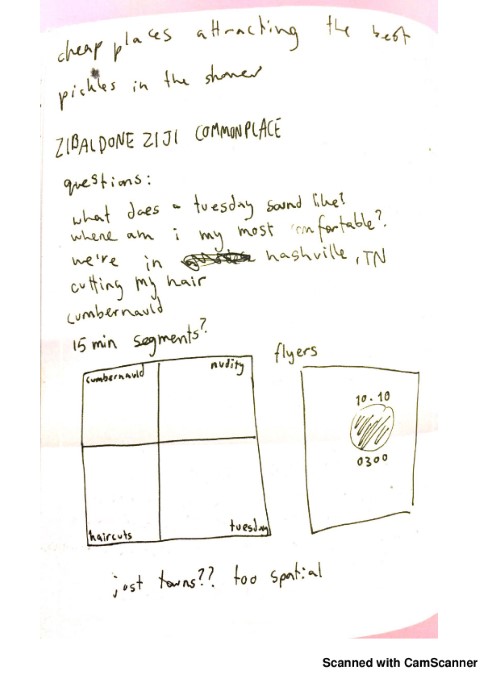 cheap places attracting the best
pickles in the shower
ZIBALDONE ZIJI COMMONPLACE
questions:
what does a tuesday sound like?
where am i my most comfortable?
we're in nashville, TN
cutting my hair
cumbernauld
15 min segments?
cumbernauld
nudity
haircuts
tuesday
flyers
10.10
0300
just towns?? too spatial
Scanned with CamScanner